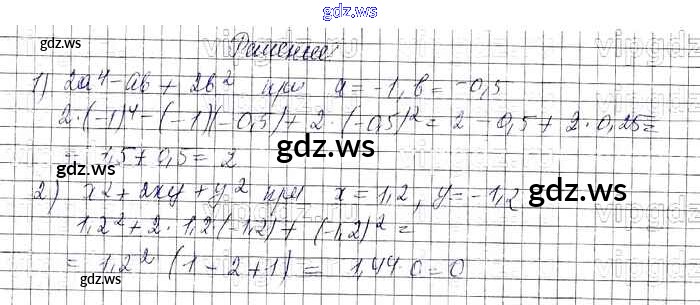 gdz.ws
Решение:
gdz.ws
1) 2a⁴ - ab + 2b² при a = -1, b = -0,5
2·(-1)⁴ - (-1)(-0,5) + 2·(-0,5)² = 2 - 0,5 + 2·0,25 =
= 1,5 + 0,5 = 2
gdz.ws
gdz.ws
2) x² + 2xy + y² при x = 1,2, y = -1,2
1,2² + 2·1,2·(-1,2) + (-1,2)² =
= 1,2² (1 - 2 + 1) = 1,44·0 = 0
gdz.ws
gdz.ws